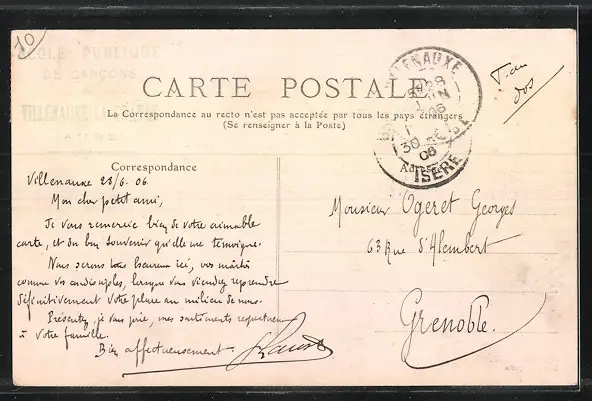 10
ECOLE PUBLIQUE
DE GARÇONS
VILLENAUXE
CARTE POSTALE
La Correspondance au recto n'est pas acceptée par tous les pays étrangers
(Se renseigner à la Poste)
VILLENAUXE
28
JUIN
06
30
06
ISERE
T. au
dos
Correspondance
Adresse
Villenauxe 28/6. 06.
Mon cher petit ami,
Je vous remercie bien de votre aimable
carte, et du bon souvenir qu'elle me témoigne.
Nous serons tous heureux ici, vos maîtres
comme vos condisciples, lorsque vous viendrez reprendre
définitivement votre place au milieu de nous.
Présentez, je vous prie, mes sentiments respectueux
à votre famille.
Bien affectueusement.
Monsieur Ogeret Georges
63 Rue d'Alembert
Grenoble.